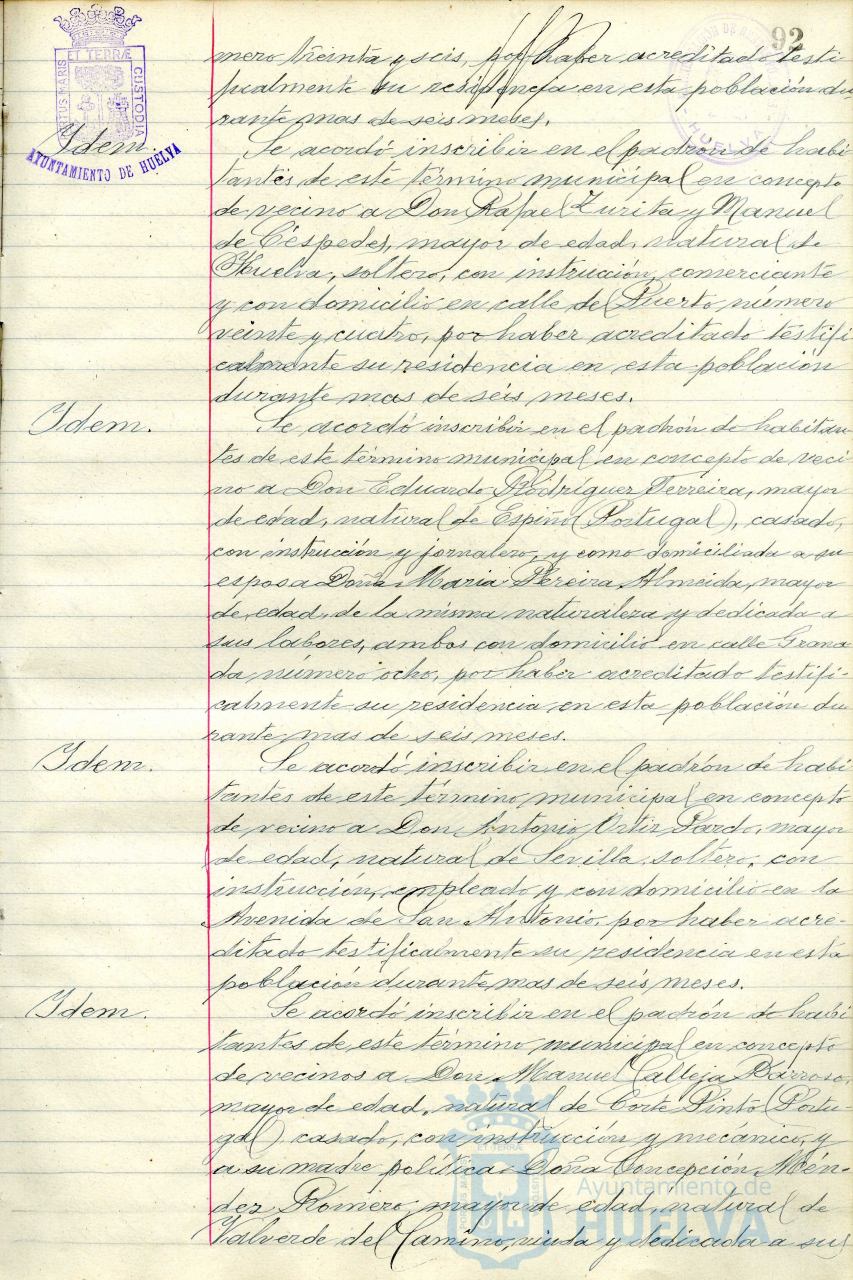 92
ET TERRÆ
PORTUS MARIS
CUSTODIA
AYUNTAMIENTO DE HUELVA
HUELVA
mero treinta y seis, por haber acreditado testi
ficalmente su residencia en esta población du
rante mas de seis meses.
Idem.
Se acordó inscribir en el padrón de habi
tantes de este término municipal en concepto
de vecino a Don Rafael Zurita y Manuel
de Céspedes, mayor de edad, natural de
Huelva, soltero, con instrucción, comerciante
y con domicilio en calle del Puerto número
veinte y cuatro, por haber acreditado testifi
calmente su residencia en esta población
durante mas de seis meses.
Idem.
Se acordó inscribir en el padrón de habitan
tes de este término municipal en concepto de veci
no a Don Eduardo Rodríguez Ferreira, mayor
de edad, natural de Espiño (Portugal), casado,
con instrucción y jornalero, y como domiciliada a su
esposa Doña Maria Pereira Almeida, mayor
de edad, de la misma naturaleza y dedicada a
sus labores, ambos con domicilio en calle Grana
da número ocho, por haber acreditado testifi-
calmente su residencia en esta población du
rante mas de seis meses.
Idem.
Se acordó inscribir en el padrón de habi
tantes de este término municipal en concepto
de vecino a Don Antonio Ortiz Pardo, mayor
de edad, natural de Sevilla, soltero, con
instrucción, empleado y con domicilio en la
Avenida de San Antonio, por haber acre-
ditado testificalmente su residencia en esta
población durante mas de seis meses.
Idem.
Se acordó inscribir en el padrón de habi
tantes de este término municipal en concepto
de vecinos a Don Manuel Calleja Barroso,
mayor de edad, natural de Corte Pinto (Portu-
gal) casado, con instrucción y mecánico, y
a su madre política Doña Concepción Mén-
dez Romero, mayor de edad, natural de
Valverde del Camino, viuda y dedicada a sus
Ayuntamiento de
HUELVA